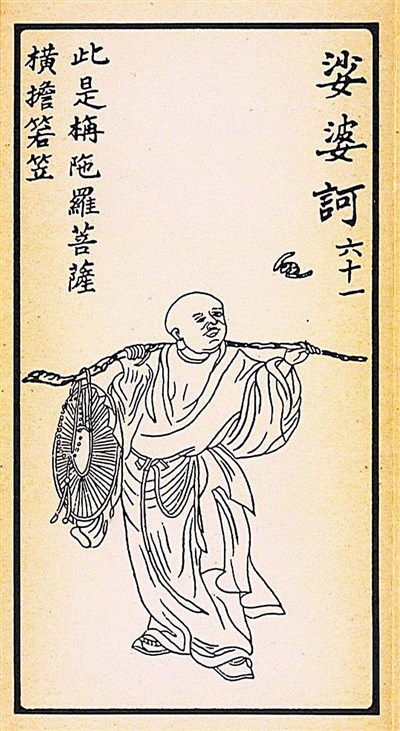 娑婆訶 六十一
此是栴陁羅菩薩
橫擔箬笠